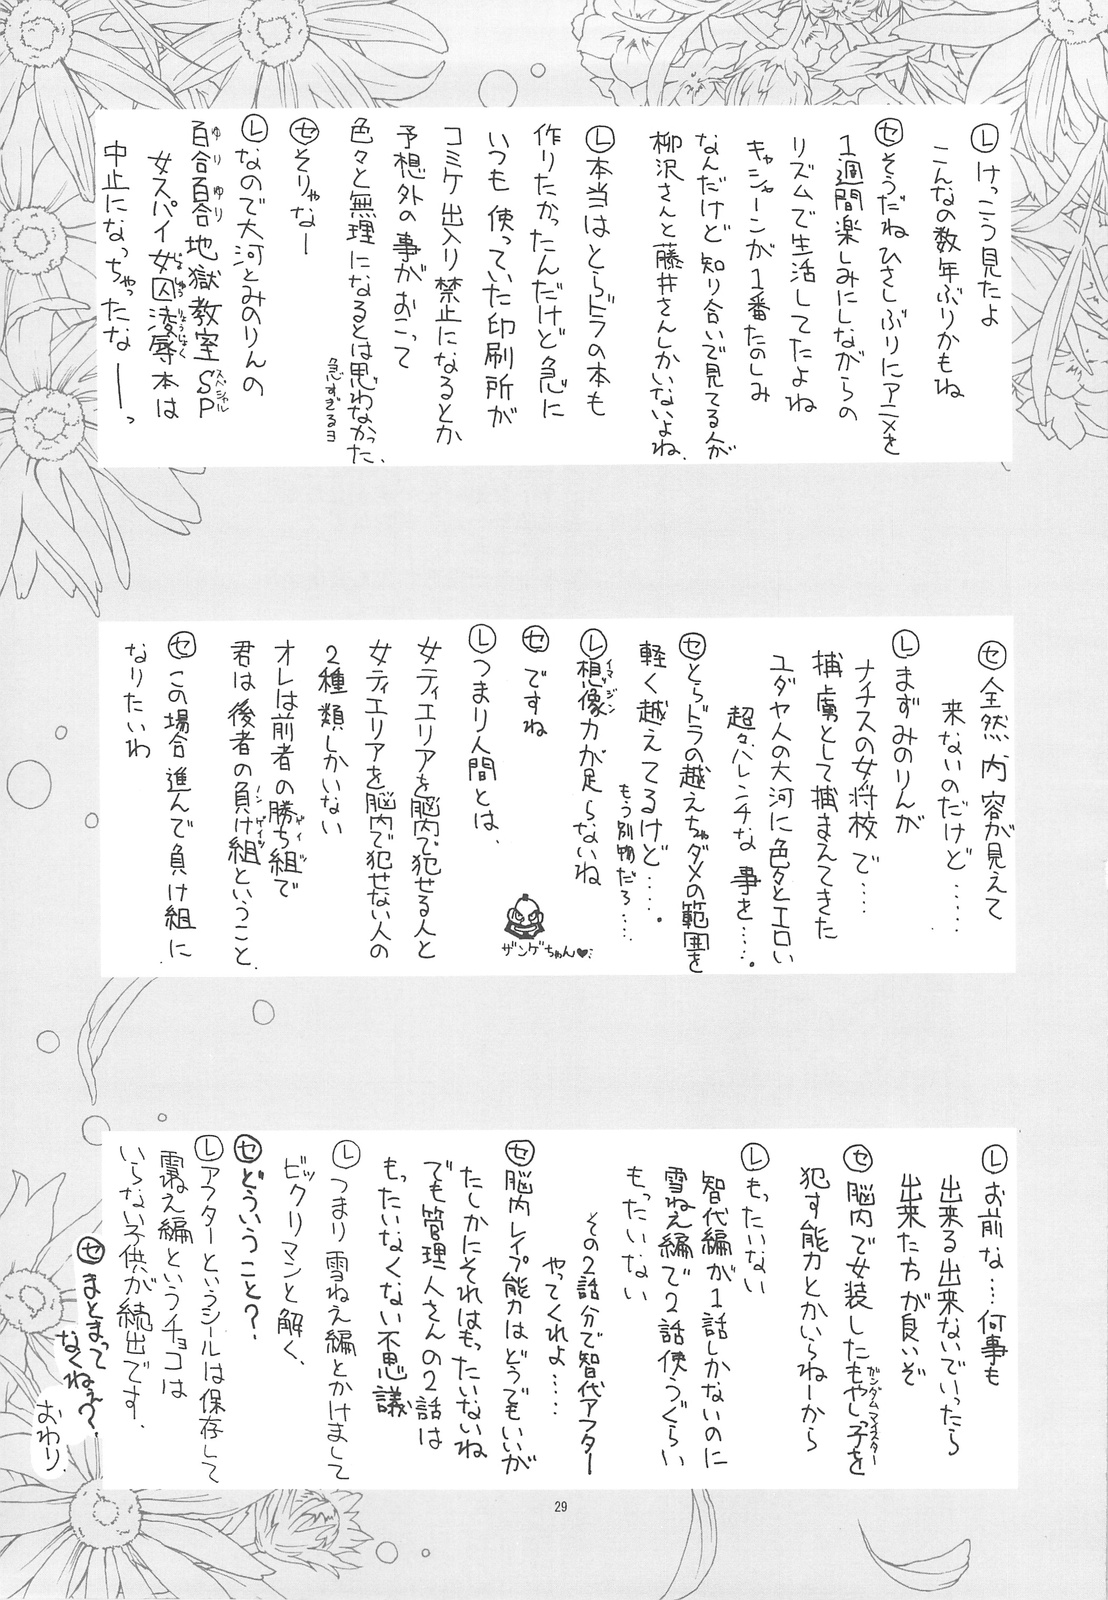 Ⓛけっこう見たよ
こんなの数年ぶりかもね
㋝そうだねひさしぶりにアニメを
1週間楽しみにしながらの
リズムで生活してたよね
キャシャーンが1番たのしみ
なんだけど知り合いで見てる人が
柳沢さんと藤井さんしかいないよね、
Ⓛ本当はとらドラの本も
作りたかったんだけど急に
いつも使っていた印刷所が
コミケ出入り禁止になるとか
予想外の事がおこって
色々と無理になるとは思わなかった、
急すぎるヨ
㋝そりゃなー
Ⓛなので大河とみのりんの
百合百合地獄教室SP
ゆり ゆり スペシャル
女スパイ女囚凌辱本は
じょしゅうりょうじょく
中止になっちゃったなーっ
㋝全然内容が見えて
来ないのだけど……
Ⓛまずみのりんが
ナチスの女将校で…
捕虜として捕まえてきた
ユダヤ人の大河に色々とエロい
超々ハレンチな事を…。
㋝とらドラの越えちゃダメの範囲を
軽く越えてるけど…。
もう別物だろ……
Ⓛ想像力が足らないね
イマジン
㋝ですね
ザンゲちゃん♥
Ⓛつまり人間とは、
女ティエリアを脳内で犯せる人と
女ティエリアを脳内で犯せない人の
2種類しかいない
オレは前者の勝ち組で
ゲイツ
君は後者の負け組ということ、
ノンゲイツ
㋝この場合進んで負け組に
なりたいわ
Ⓛお前な…何事も
出来る出来ないでいったら
出来た方が良いぞ
㋝脳内で女装したもやしっ子を
ガンダムマイスター
犯す能力とかいらねーから
Ⓛもったいない
智代編が1話しかないのに
雪ねえ編で2話使うぐらい
もったいない
その2話分で智代アフター
やってくれよ……
㋝脳内レイプ能力はどうでもいいが
たしかにそれはもったいないね
でも管理人さんの2話は
もったいなくない不思議
Ⓛつまり雪ねえ編とかけまして
ビックリマンと解く、
㋝どういうこと?
Ⓛアフターというシールは保存して
雪ねえ編というチョコは
いらない子供が続出です、
㋝まとまって
なくねぇ?
おわり、
29